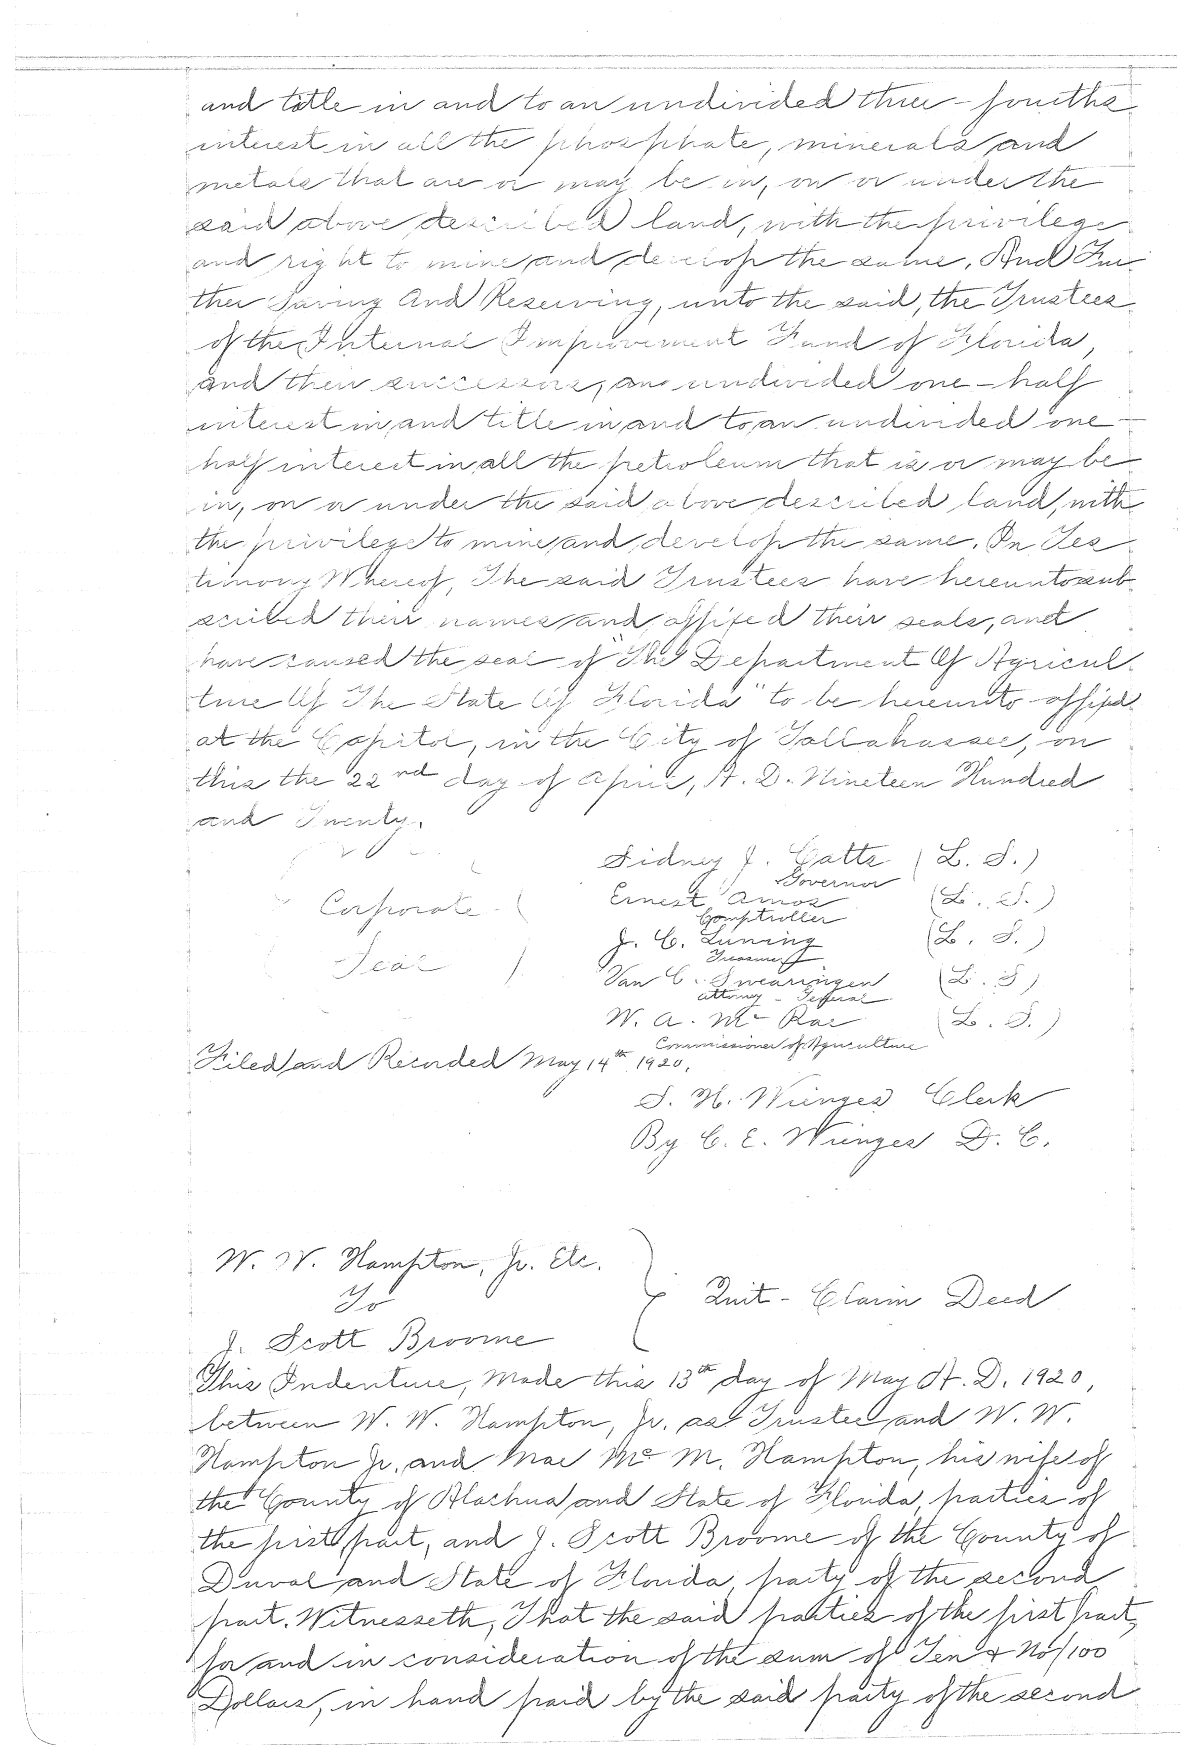 and title in and to an undivided three-fourths
interest in all the phosphate, minerals and
metals that are or may be in, on or under the
said above described land, with the privilege
and right to mine and develop the same. And Fur-
ther Saving And Reserving, unto the said, the Trustees
of the Internal Improvement Fund of Florida,
and their successors, an undivided one-half
interest in, and title in, and to, an undivided one-
half interest in all the petroleum that is or may be
in, on or under the said above described land, with
the privilege to mine and develop the same. In Tes-
timony Whereof, The said Trustees have hereunto sub-
scribed their names and affixed their seals, and
have caused the seal of "The Department Of Agricul-
ture Of The State Of Florida" to be hereunto affixed
at the Capitol, in the City of Tallahassee, on
this the 22nd day of April, A. D. Nineteen Hundred
and Twenty.
Sidney J. Catts (L. S.)
Governor
Corporate Ernest Amos (L. S.)
Comptroller
J. C. Luning (L. S.)
Treasurer
Seal Van C. Swearingen (L. S)
Attorney-General
W. A. McRae (L. S.)
Commissioner of Agriculture
Filed and Recorded May 14th 1920.
S. H. Wienges Clerk
By C. E. Wienges D. C.
W. W. Hampton, Jr. Etc.
To Quit-Claim Deed
J. Scott Broome
This Indenture, Made this 13th day of May A. D. 1920,
between W. W. Hampton, Jr. as Trustee and W. W.
Hampton Jr. and Mae Mc M. Hampton, his wife of
the County of Alachua and State of Florida, parties of
the first part, and J. Scott Broome of the County of
Duval and State of Florida, party of the second
part. Witnesseth, That the said parties of the first part,
for and in consideration of the sum of Ten & No/100
Dollars, in hand paid by the said party of the second